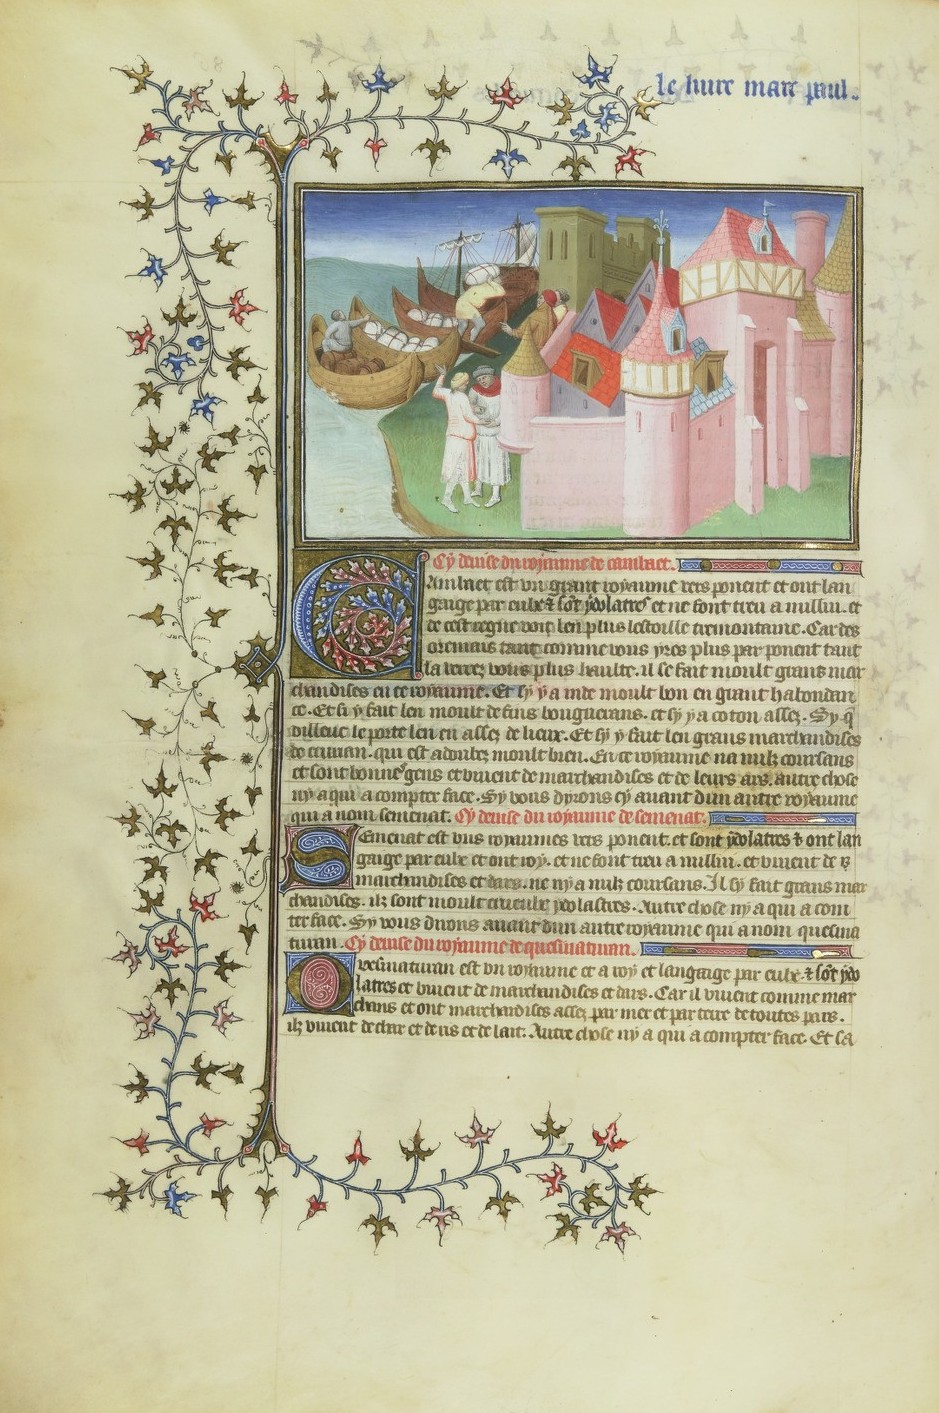 le liure marc paul.
Cy deuise du royaume de cambaet.
Cambaet est vn grant royaume vers ponent et ont lan
gaige par eulx et sont ydolatres et ne font treu a nullui. et
de cest regne voit len plus lestoille tremontaine. Car des
oremais tant comme vous yres plus par ponent tant
la verrez vous plus haulte. il se fait moult grans mar
chandises en ce royaume. Et sy y a inde moult bon en grant habondan
ce. Et si y fait len moult de fins bouguerans. et sy y a coton assez. Sy q̄
dilleuc le porte len en assez de lieux. Et sy y fait len grans marchandises
de cuiram. qui est adoubez moult bien. En ce royaume na nulz coursans
et sont bonnes gens et viuent de marchandises et de leurs ars. autre chose
ny a qui a compter face. Sy vous dyrons cy auant dun autre royaume
qui a nom semenat. Cy deuise du royaume de semenat.
Semenat est vns royaumes vers ponent. et sont ydolatres et ont lan
gaige par eulx et ont roy. et ne font treu a nullui. et viuent de
marchandises et dars. ne ny a nulz coursans. Il sy fait grans mar
chandises. ilz sont moult crueulx ydolastres. Autre chose ny a qui a com
ter face. Sy vous dirons auant dun autre royaume qui a nom quesiua
turan. Cy deuise du royaume de quesiuaturan.
Quesiuaturan est vn royaume et a roy et langaige par eulx. et sont ydo
latres et viuent de marchandises et dars. Car il viuent comme mar
chans et ont marchandises assez par mer et par terre de toutes pars.
ilz viuent de char et de ris et de lait. Autre chose ny a qui a compter face. Et sa